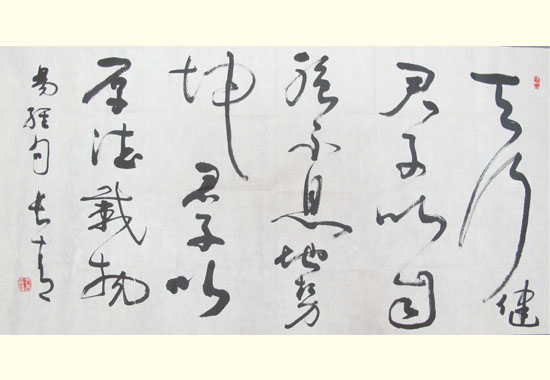 天行健
君子以自
強不息地勢
坤君子以
厚德載物
易經句長青